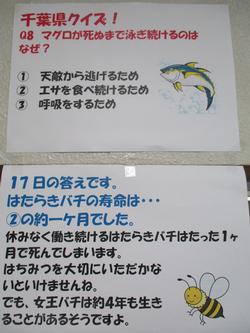 千葉県クイズ！
Q8 マグロが死ぬまで泳ぎ続けるのは
なぜ？
① 天敵から逃げるため
② エサを食べ続けるため
③ 呼吸をするため
17日の答えです。
はたらきバチの寿命は・・・
②の約一ケ月でした。
休みなく働き続けるはたらきバチはたった1ヶ
月で死んでしまいます。
はちみつを大切にいただかな
いといけませんね。
でも、女王バチは約4年も生き
ることがあるそうですよ。